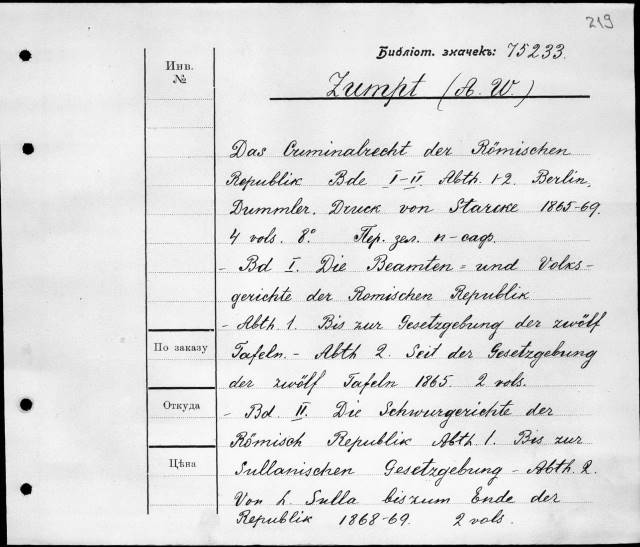 219
Библіот. значекъ: 75233.
Инв.
№
Zumpt (A. W.)
Das Criminalrecht der Römischen
Republik Bde I-II Abth. 1-2. Berlin,
Dummler. Druck von Starcke 1865-69.
4 vols. 8°. Пер. зел. п-саф.
- Bd I. Die Beamten = und Volks-
gerichte der Romischen Republik
- Abth. 1. Bis zur Gesetzgebung der zwölf
Tafeln. - Abth 2. Seit der Gesetzgebung
der zwölf Tafeln 1865. 2 vols.
- Bd. II. Die Schwurgerichte der
Römisch Republik Abth. 1. Bis zur
Sullanischen Gesetzgebung - Abth. 2.
Von L. Sulla bis zum Ende der
Republik 1868-69. 2 vols.
По заказу
Откуда
Цѣна